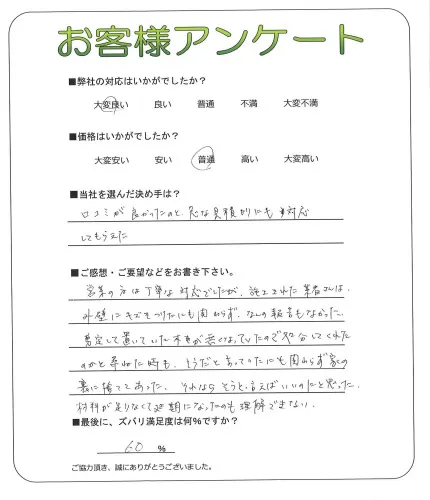 お客様アンケート
■弊社の対応はいかがでしたか？
大変良い　良い　普通　不満　大変不満
■価格はいかがでしたか？
大変安い　安い　普通　高い　大変高い
■当社を選んだ決め手は？
口コミが良かったのと、急な見積りにも対応
してもらえた
■ご感想・ご要望などをお書き下さい。
営業の方は丁寧な対応でしたが、施工された業者さんは、
外壁にキズをつけたにも関わらず、なんの報告もなかった。
剪定して置いていた木が無くなっていたので処分してくれた
のかと尋ねた時も、そうだと言っていたにも関わらず家の
裏に捨ててあった。それならそうと言えばいいのにと思った。
材料が足りなくて延期になったのも理解できない。
■最後に、ズバリ満足度は何％ですか？
60 ％
ご協力頂き、誠にありがとうございました。